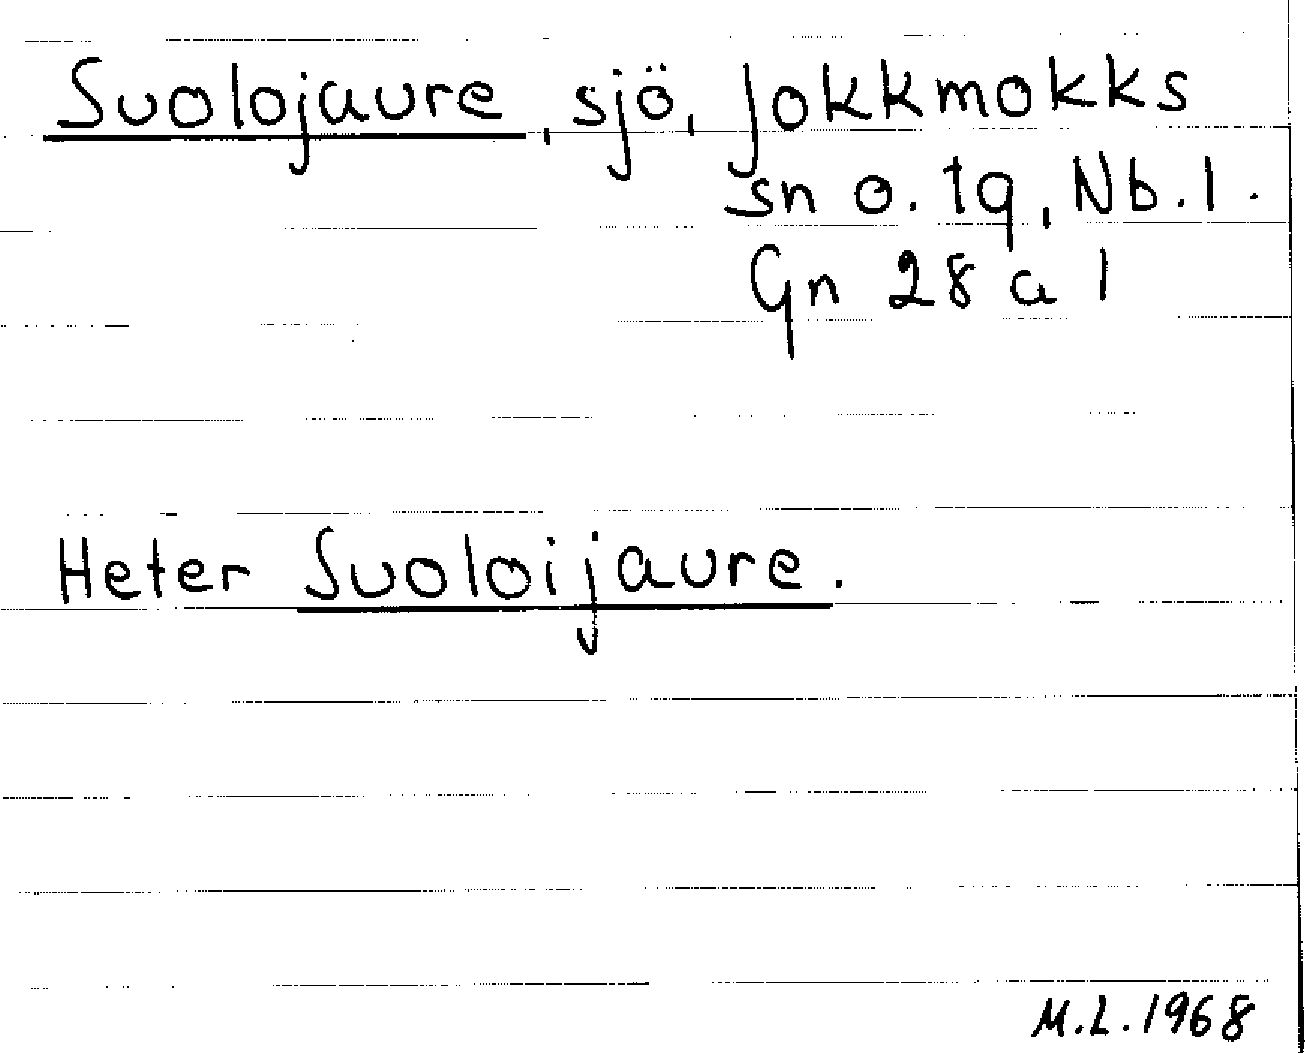 Suolojaure, sjö, Jokkmokks
sn o. tg, Nb. l.
Gn 28 a l
Heter Suoloijaure.
M.L. 1968